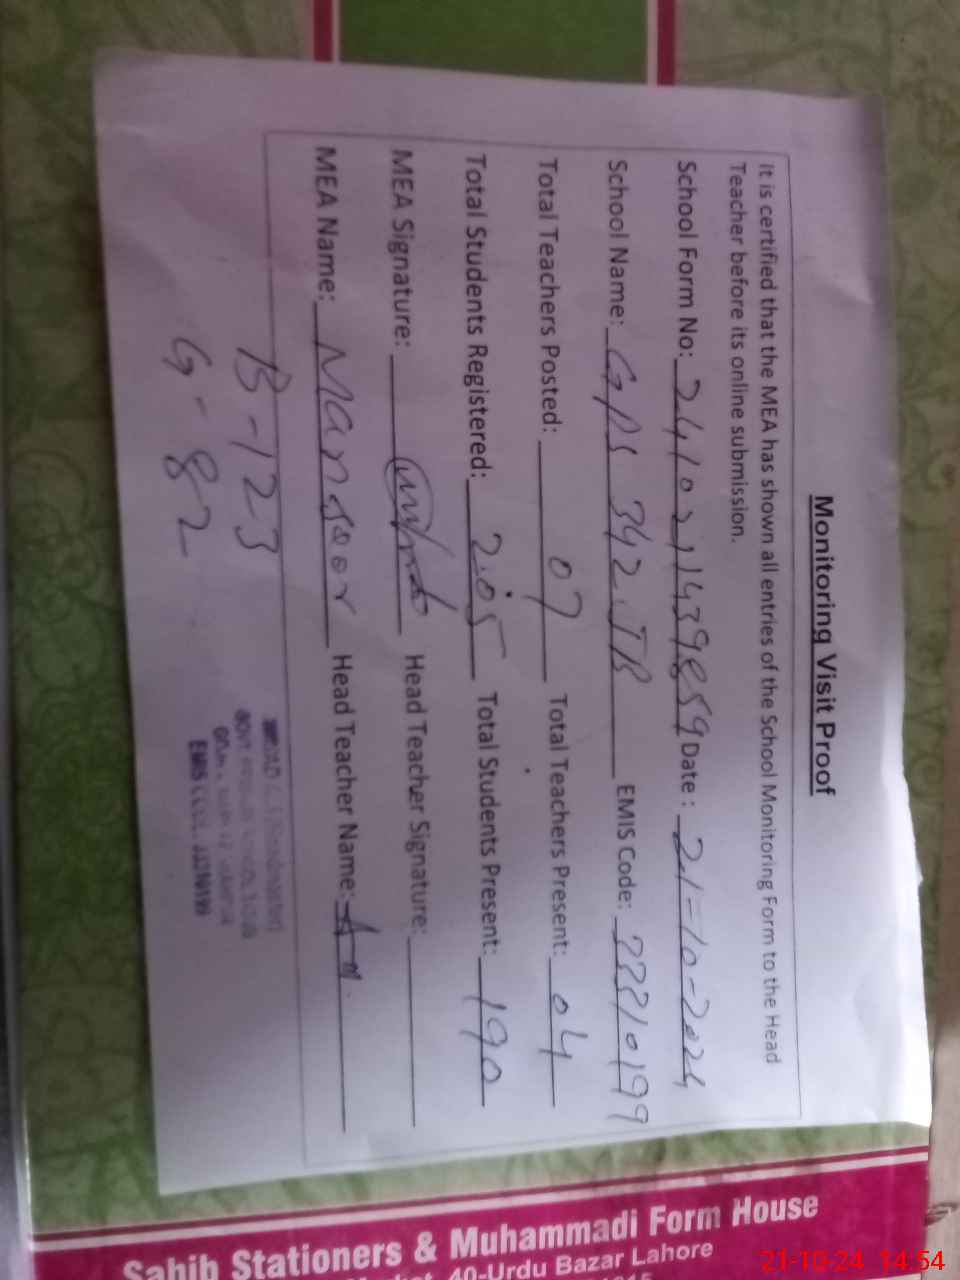 Monitoring Visit Proof
It is certified that the MEA has shown all entries of the School Monitoring Form to the Head
Teacher before its online submission.
School Form No: 241021439859 Date: 21-10-2024
School Name: GPS 342 JB EMIS Code: 33310199
Total Teachers Posted: 07 Total Teachers Present: 04
Total Students Registered: 205 Total Students Present: 190
MEA Signature: Head Teacher Signature:
MEA Name: Mansoor Head Teacher Name:
B-123
G-82
EMIS 33310199
Sahib Stationers & Muhammadi Form House
40-Urdu Bazar Lahore
21-10-24 14:54